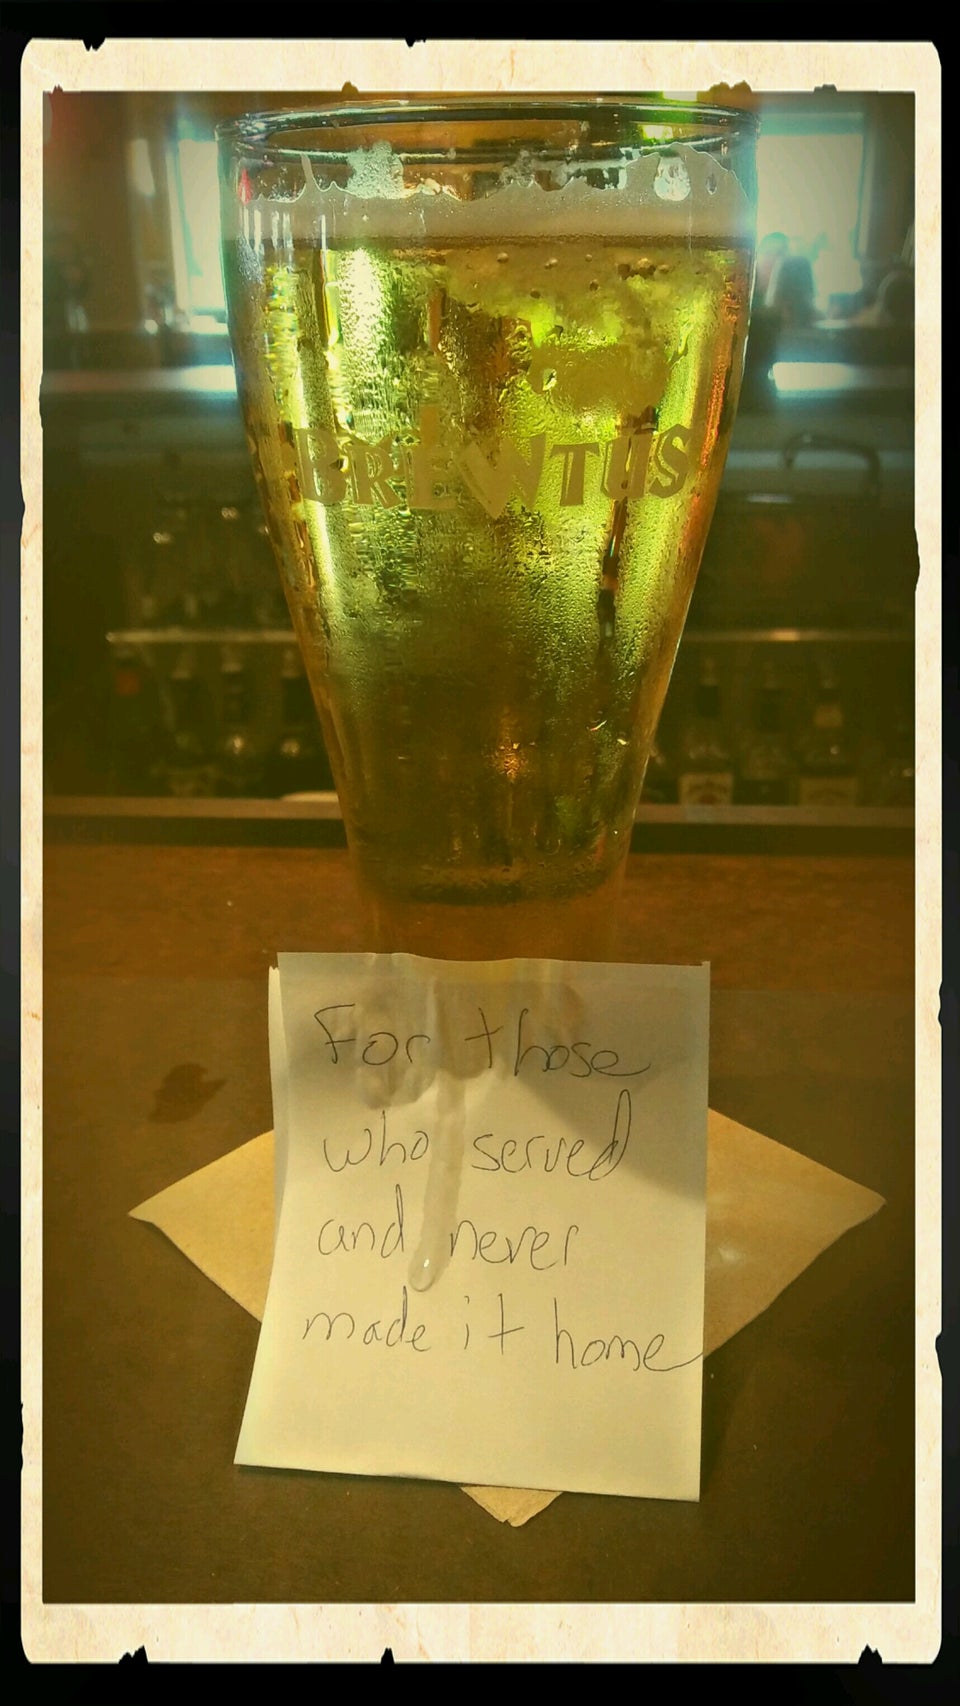 BREWTUS
For those
who served
and never
made it home